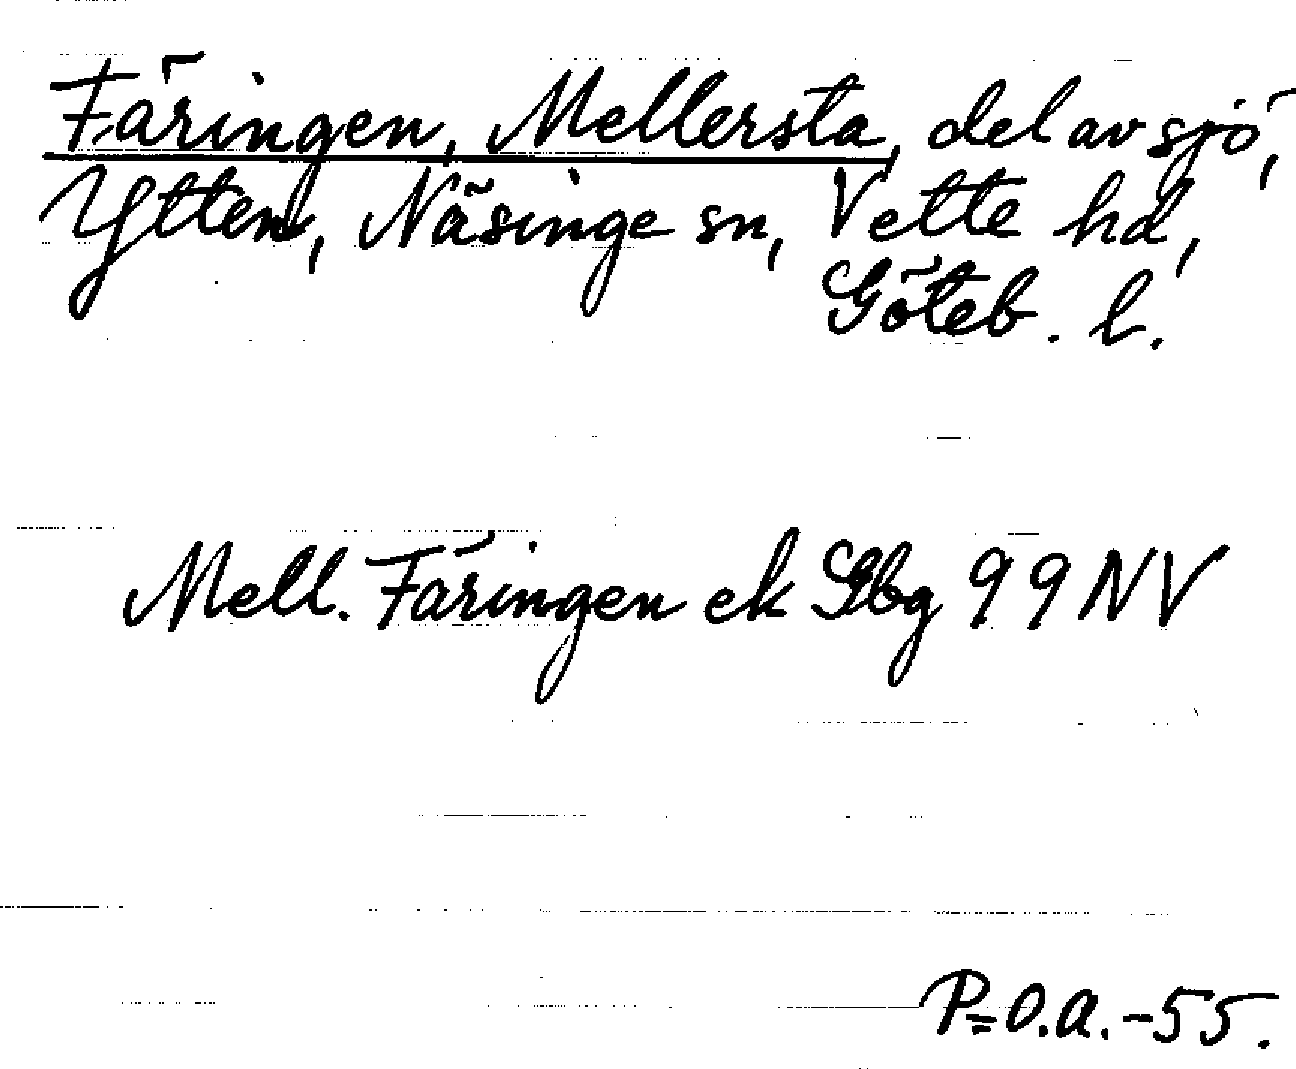 Färingen, Mellersta, del av sjö,
Ytten, Näsinge sn, Vette hd,
Göteb. l.
Mell. Färingen ek Gbg 99 NV
P=O.A.-55.